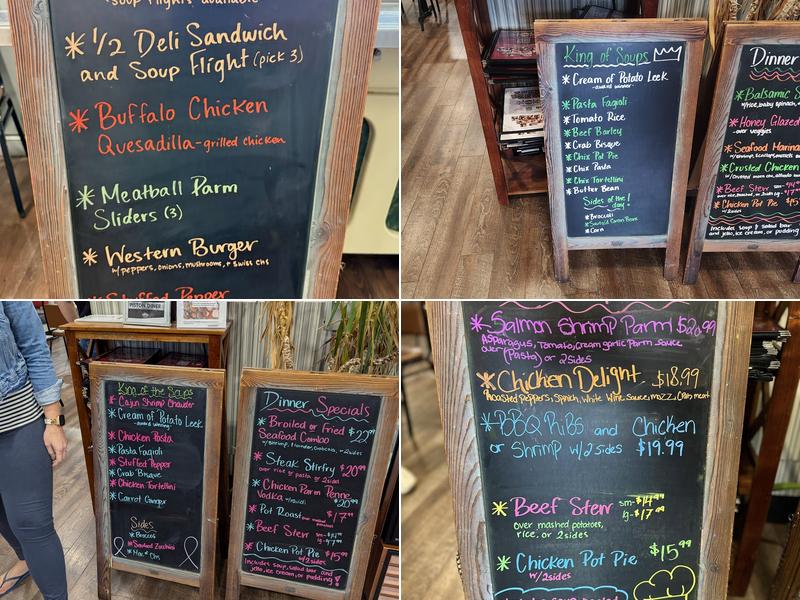 soup flights available
* 1/2 Deli Sandwich
and Soup Flight (pick 3)
* Buffalo Chicken
Quesadilla - grilled chicken
* Meatball Parm
Sliders (3)
* Western Burger
w/ peppers, onions, mushrooms, + Swiss chs
Stuffed Pepper
King of Soups
* Cream of Potato Leek
- award winner -
* Pasta Fagioli
* Tomato Rice
* Beef Barley
* Crab Bisque
* Chix Pot Pie
* Chix Pasta
* Chix Tortellini
* Butter Bean
Sides of the day!
* Broccoli
* Corn
Dinner
* Balsamic S
w/rice, baby spinach,
* Honey Glazed
- over veggies
* Seafood Marina
* Crusted Chicken
* Beef Stew
* Chicken Pot Pie $15
w/2 sides
Includes soup & salad bar
and jello, ice cream, or pudding
PISTON DINER
King of the Soups
* Cajun Shrimp Chowder
* Cream of Potato Leek
- award winning -
* Chicken Pasta
* Pasta Fagioli
* Stuffed Pepper
* Crab Bisque
* Chicken Tortellini
* Carrot Ginger
Sides
* Broccoli
* Sauteed Zucchini
* Mac n Chs
Dinner Specials
* Broiled or Fried $22.99
Seafood Combo
w/shrimp, flounder, scallops, + 2 sides
* Steak Stirfry $20.99
over rice or pasta or 2 sides
* Chicken Parm Penne
Vodka w/ravioli $20.99
* Pot Roast over mashed potatoes $17.99
* Beef Stew sm-$14.99
lg-$17.99
* Chicken Pot Pie $15.99
w/2 sides
Includes soup, salad bar and
jello, ice cream, or pudding!
* Salmon Shrimp Parm $20.99
Asparagus, Tomato, Cream garlic parm sauce
over (Pasta) or 2 sides
* Chicken Delight - $18.99
Roasted Peppers, Spinich, White Wine Sauce, mozz, Crab meat
* BBQ Ribs and Chicken
or Shrimp w/2 sides $19.99
* Beef Stew sm-$14.99
lg-$17.99
over mashed potatoes,
rice, or 2 sides
* Chicken Pot Pie $15.99
w/2 sides